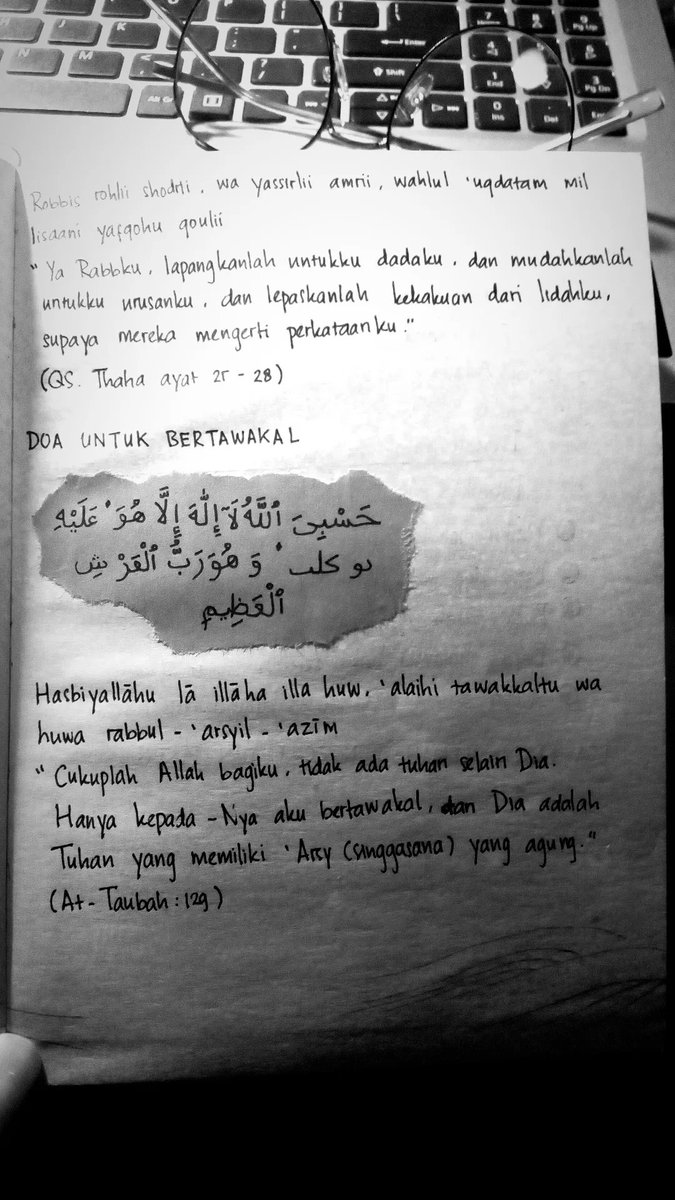 K J
N M
Enter
Shift
Alt Gr
7
4
1 End
0 Ins
9 Pg Up
3 Pg Dn
Del
Robbis rohlii shodrii, wa yassirlii amrii, wahlul 'uqdatam mil
lisaani yafqohu qoulii
"Ya Rabbku, lapangkanlah untukku dadaku, dan mudahkanlah
untukku urusanku, dan lepaskanlah kekakuan dari lidahku,
supaya mereka mengerti perkataanku."
(QS. Thaha ayat 25 - 28)
DOA UNTUK BERTAWAKAL
حَسْبِىَ ٱللَّهُ لَآ إِلَٰهَ إِلَّا هُوَ ۖ عَلَيْهِ
ٮو كلٮ ۖ وَ هُوَ رَبُّ ٱلْعَرْ شِ
ٱلْعَظِيمِ
Hasbiyallāhu lā illāha illa huw, 'alaihi tawakkaltu wa
huwa rabbul - 'arsyil - 'azīm
"Cukuplah Allah bagiku, tidak ada tuhan selain Dia.
Hanya kepada - Nya aku bertawakal, dan Dia adalah
Tuhan yang memiliki 'Arsy (singgasana) yang agung."
(At - Taubah : 129)